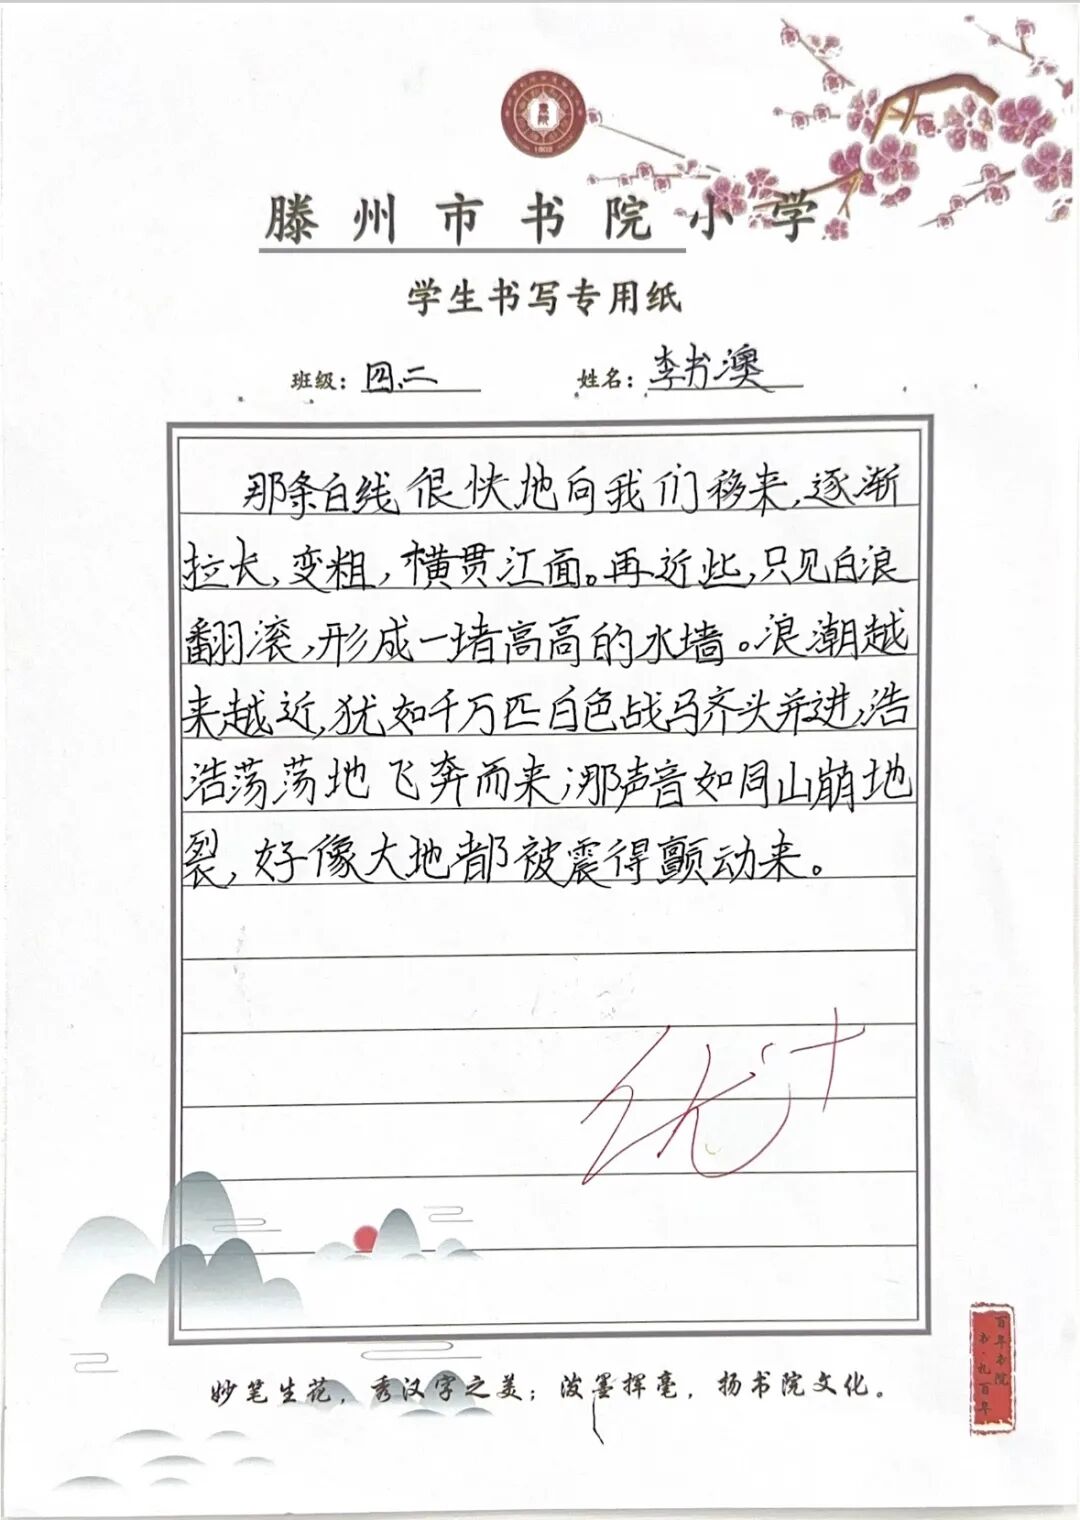 滕州市书院小学
学生书写专用纸
班级：四.二 姓名：李书澳
那条白线很快地向我们移来，逐渐
拉长，变粗，横贯江面。再近些，只见白浪
翻滚，形成一堵高高的水墙。浪潮越
来越近，犹如千万匹白色战马齐头并进，浩
浩荡荡地飞奔而来；那声音如同山崩地
裂，好像大地都被震得颤动来。
优+
妙笔生花，秀汉字之美；泼墨挥毫，扬书院文化。
百年书院
书·礼百年